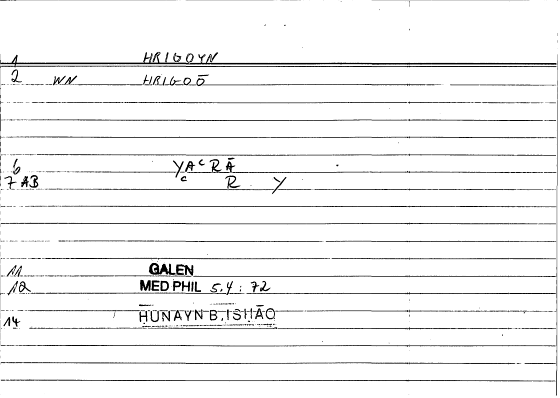 1 HRIGOYN
2 WN HRIGOŌ
6 YAᶜRĀ
7 AB ᶜ R Y
11 GALEN
12 MED PHIL 5.4 : 72
14 ḤUNAYN B. ISḤĀQ